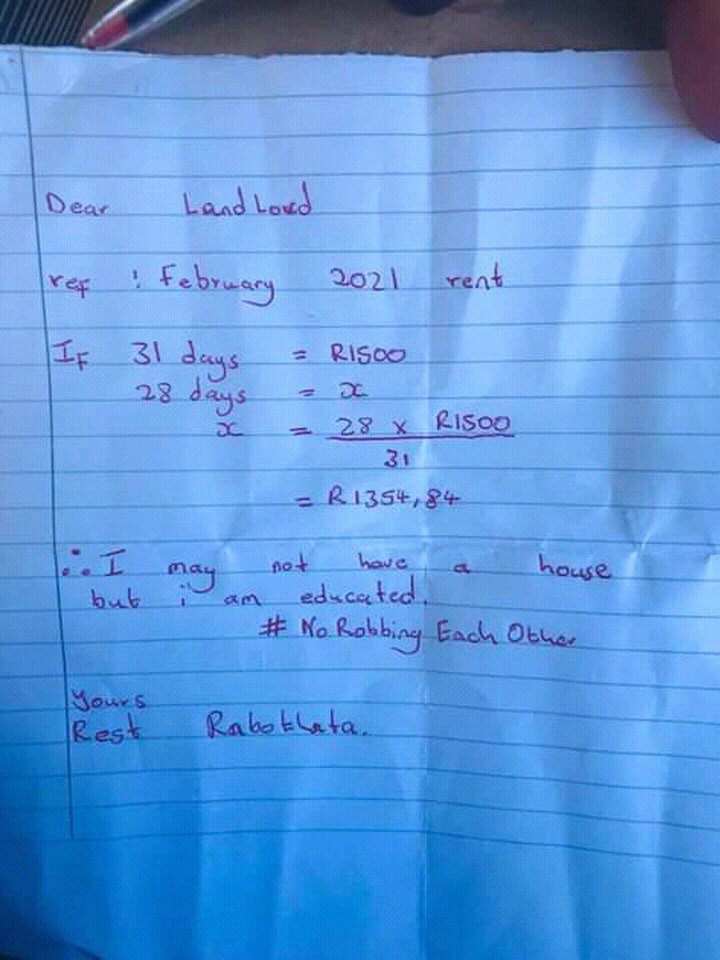 Dear Landlord
ref : February 2021 rent
IF 31 days = R1500
28 days = x
x = 28 x R1500
31
= R1354,84
∴ I may not have a house
but i am educated.
# No Robbing Each Other
Yours
Rest Rabothata.